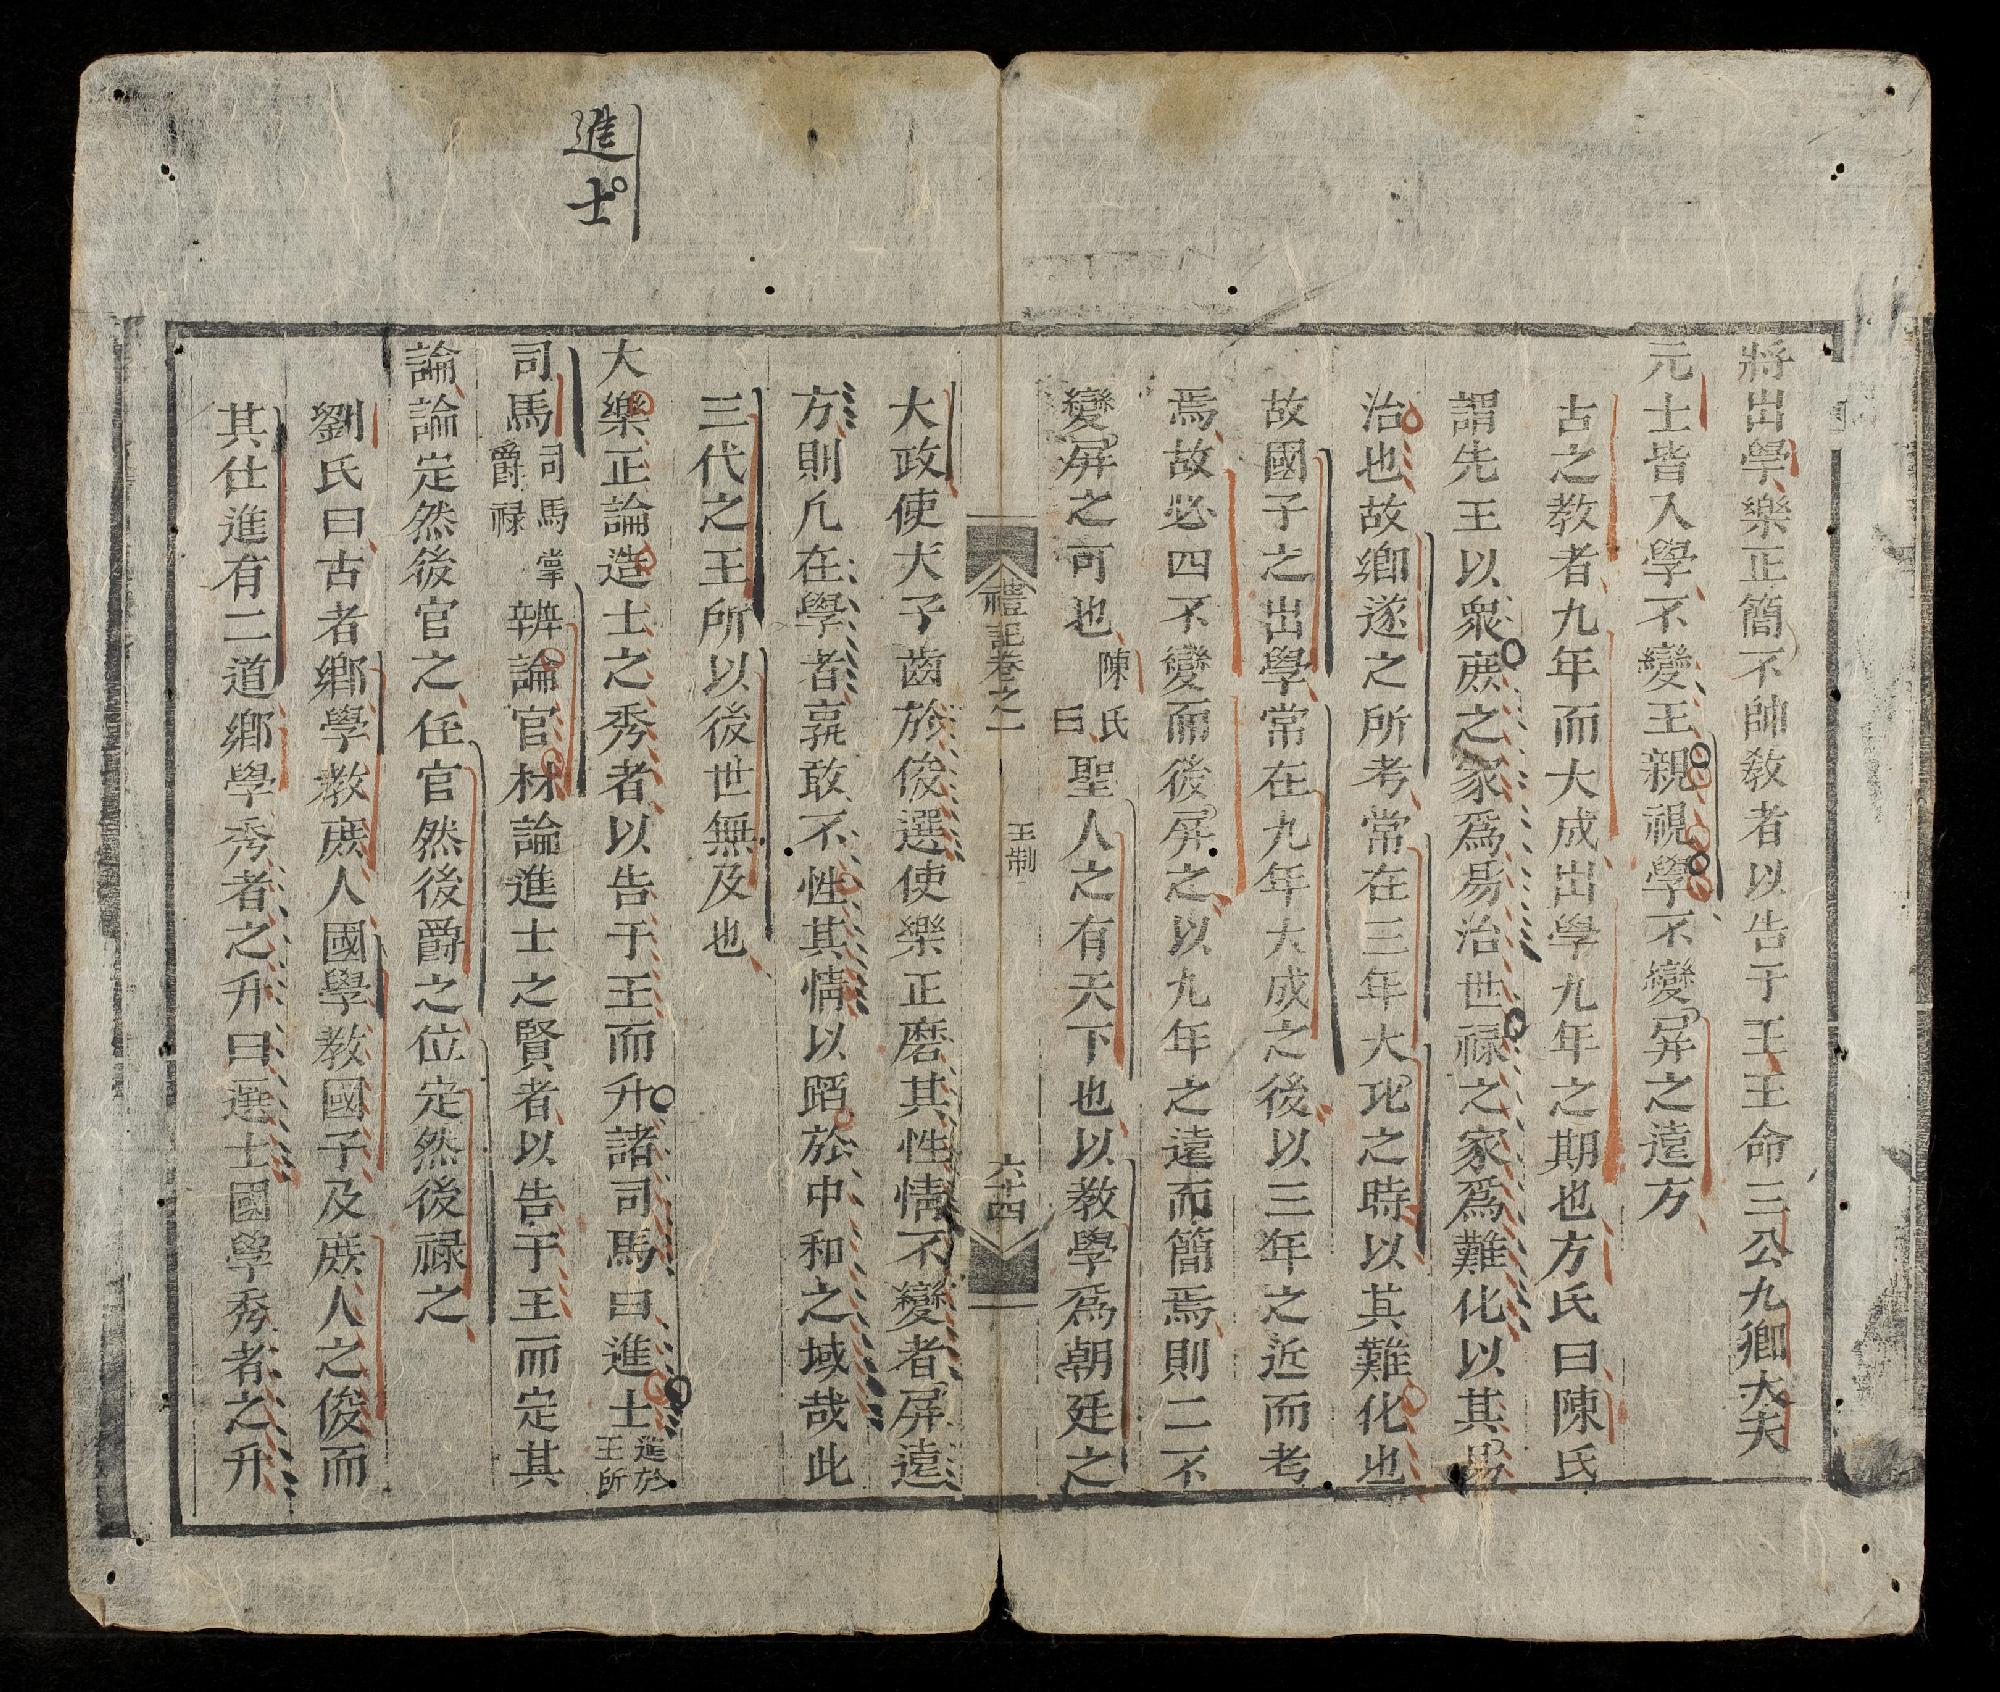 進士
將出學樂正簡不帥敎者以告于王王命三公九卿大夫
元士皆入學不變王親視學不變屏之遠方
古之教者九年而大成出學九年之期也方氏曰陳氏
謂先王以衆庻之家爲易治世禄之家爲難化以其易
治也故鄉遂之所考常在三年大比之時以其難化也
故國子之出學常在九年大成之後以三年之近而考
焉故必四不變而後屏之以九年之遠而簡焉則二不
變屏之可也陳氏曰聖人之有天下也以教學爲朝廷之
禮記卷之一
王制
六十四
大政使大子齒於俊選使樂正磨其性情不變者屏遠
方則凢在學者孰敢不性其情以蹈於中和之域哉此
三代之王所以後世無及也
大樂正論造士之秀者以告于王而升諸司馬曰進士進於王所
司馬司馬掌爵禄辨論官材論進士之賢者以告于王而定其
論論㝎然後官之任官然後爵之位定然後禄之
劉氏曰古者鄉學教庻人國學教國子及庻人之俊而
其仕進有二道鄉學秀者之升曰選士國學秀者之升